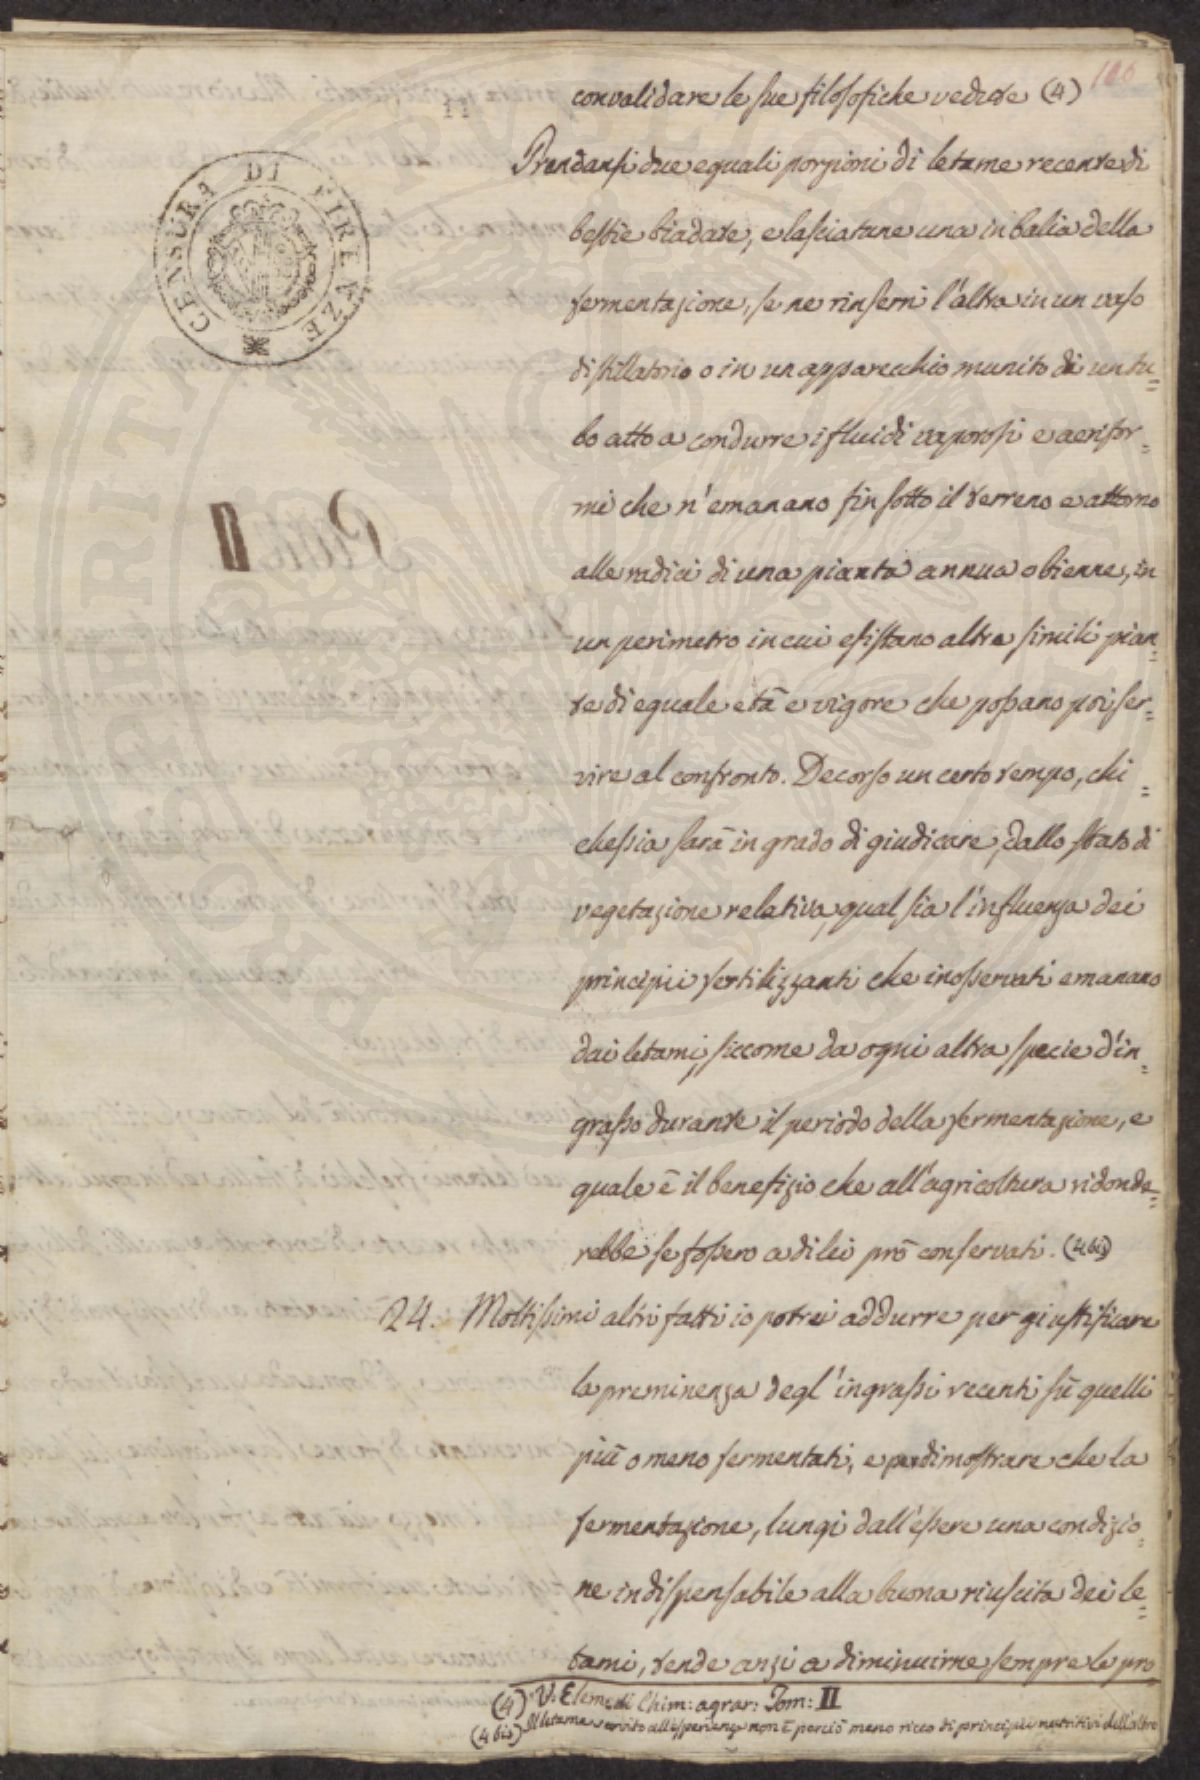 106
convalidare le sue filosofiche vedute (4)
Prendansi due eguali porzioni di letame recente di
bestie biadate, e lasciatane una in balia della
fermentazione, se ne rinserri l'altra in un vaso
distillatorio o in un apparecchio munito di un tu=
bo atto a condurre i fluidi vaporosi e aerifor=
mi che n'emanano fin sotto il terreno e attorno
alle radici di una pianta annua o bienne, in
un perimetro in cui esistano altre simili pian=
te di eguale età e vigore che possano poi ser=
vire al confronto. Decorso un certo tempo, chi=
chessia sarà in grado di giudicare, dallo stato di
vegetazione relativa, qual sia l'influenza dei
principii fertilizzanti che inosservati emanano
dai letami, siccome da ogni altra specie d'in=
grasso durante il periodo della fermentazione, e
quale è il benefizio che all'agricoltura ridonde=
rebbe se fossero a di lei prò conservati. (4 bis)
24. Moltissimi altri fatti io potrei addurre per giustificare
la preminenza degl'ingrassi recenti sù quelli
più o meno fermentati, e per dimostrare che la
fermentazione, lungi dall'essere una condizio=
ne indispensabile alla buona riuscita dei le=
tami, tende anzi a diminuirne sempre le pro
(4) V. Elem: di Chim: agrar: Tom: II
(4 bis) Il letame servito all'esperienza non è perciò meno ricco di principii nutritivi dell'altro
CENSURA DI FIRENZE